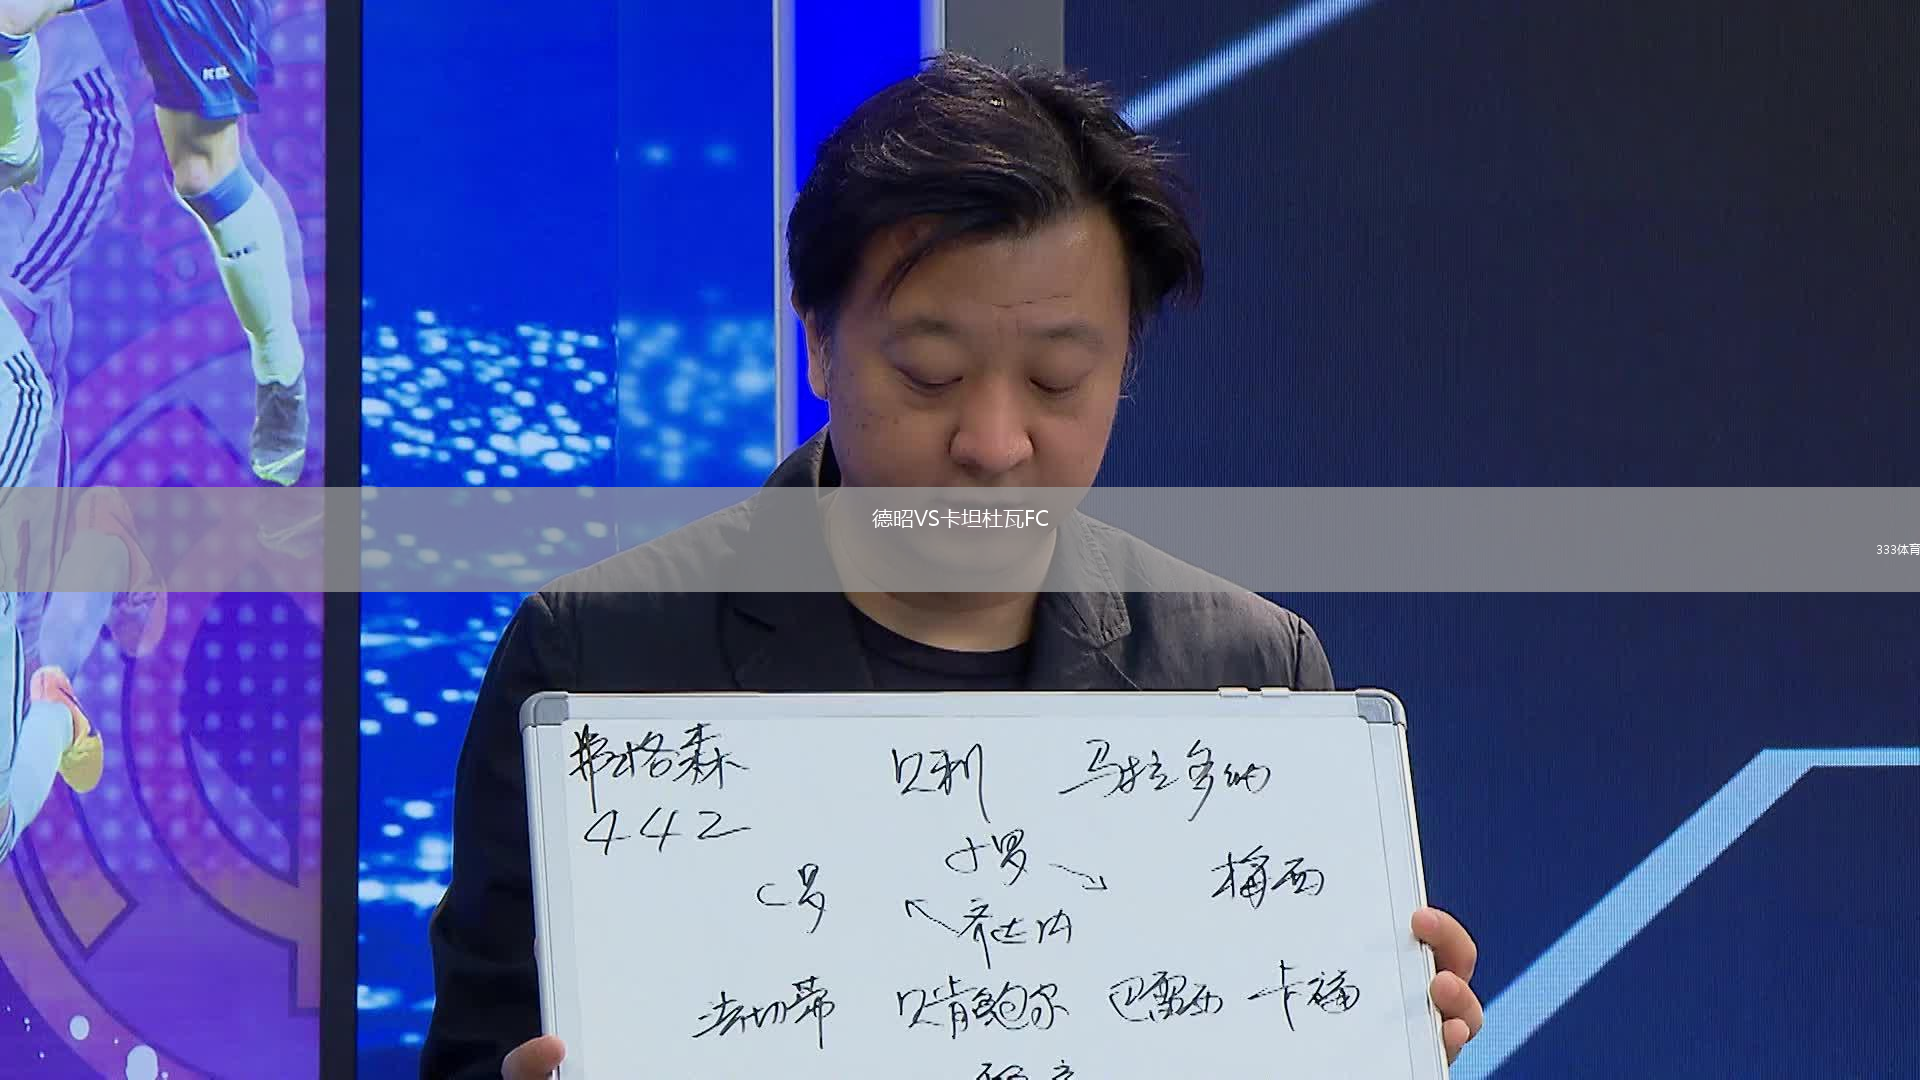 德昭VS卡坦杜瓦FC
333体育
弗格森 贝利 马拉多纳
442
小罗
C罗 梅西
齐达内
法切蒂 贝肯鲍尔 巴雷西 卡福